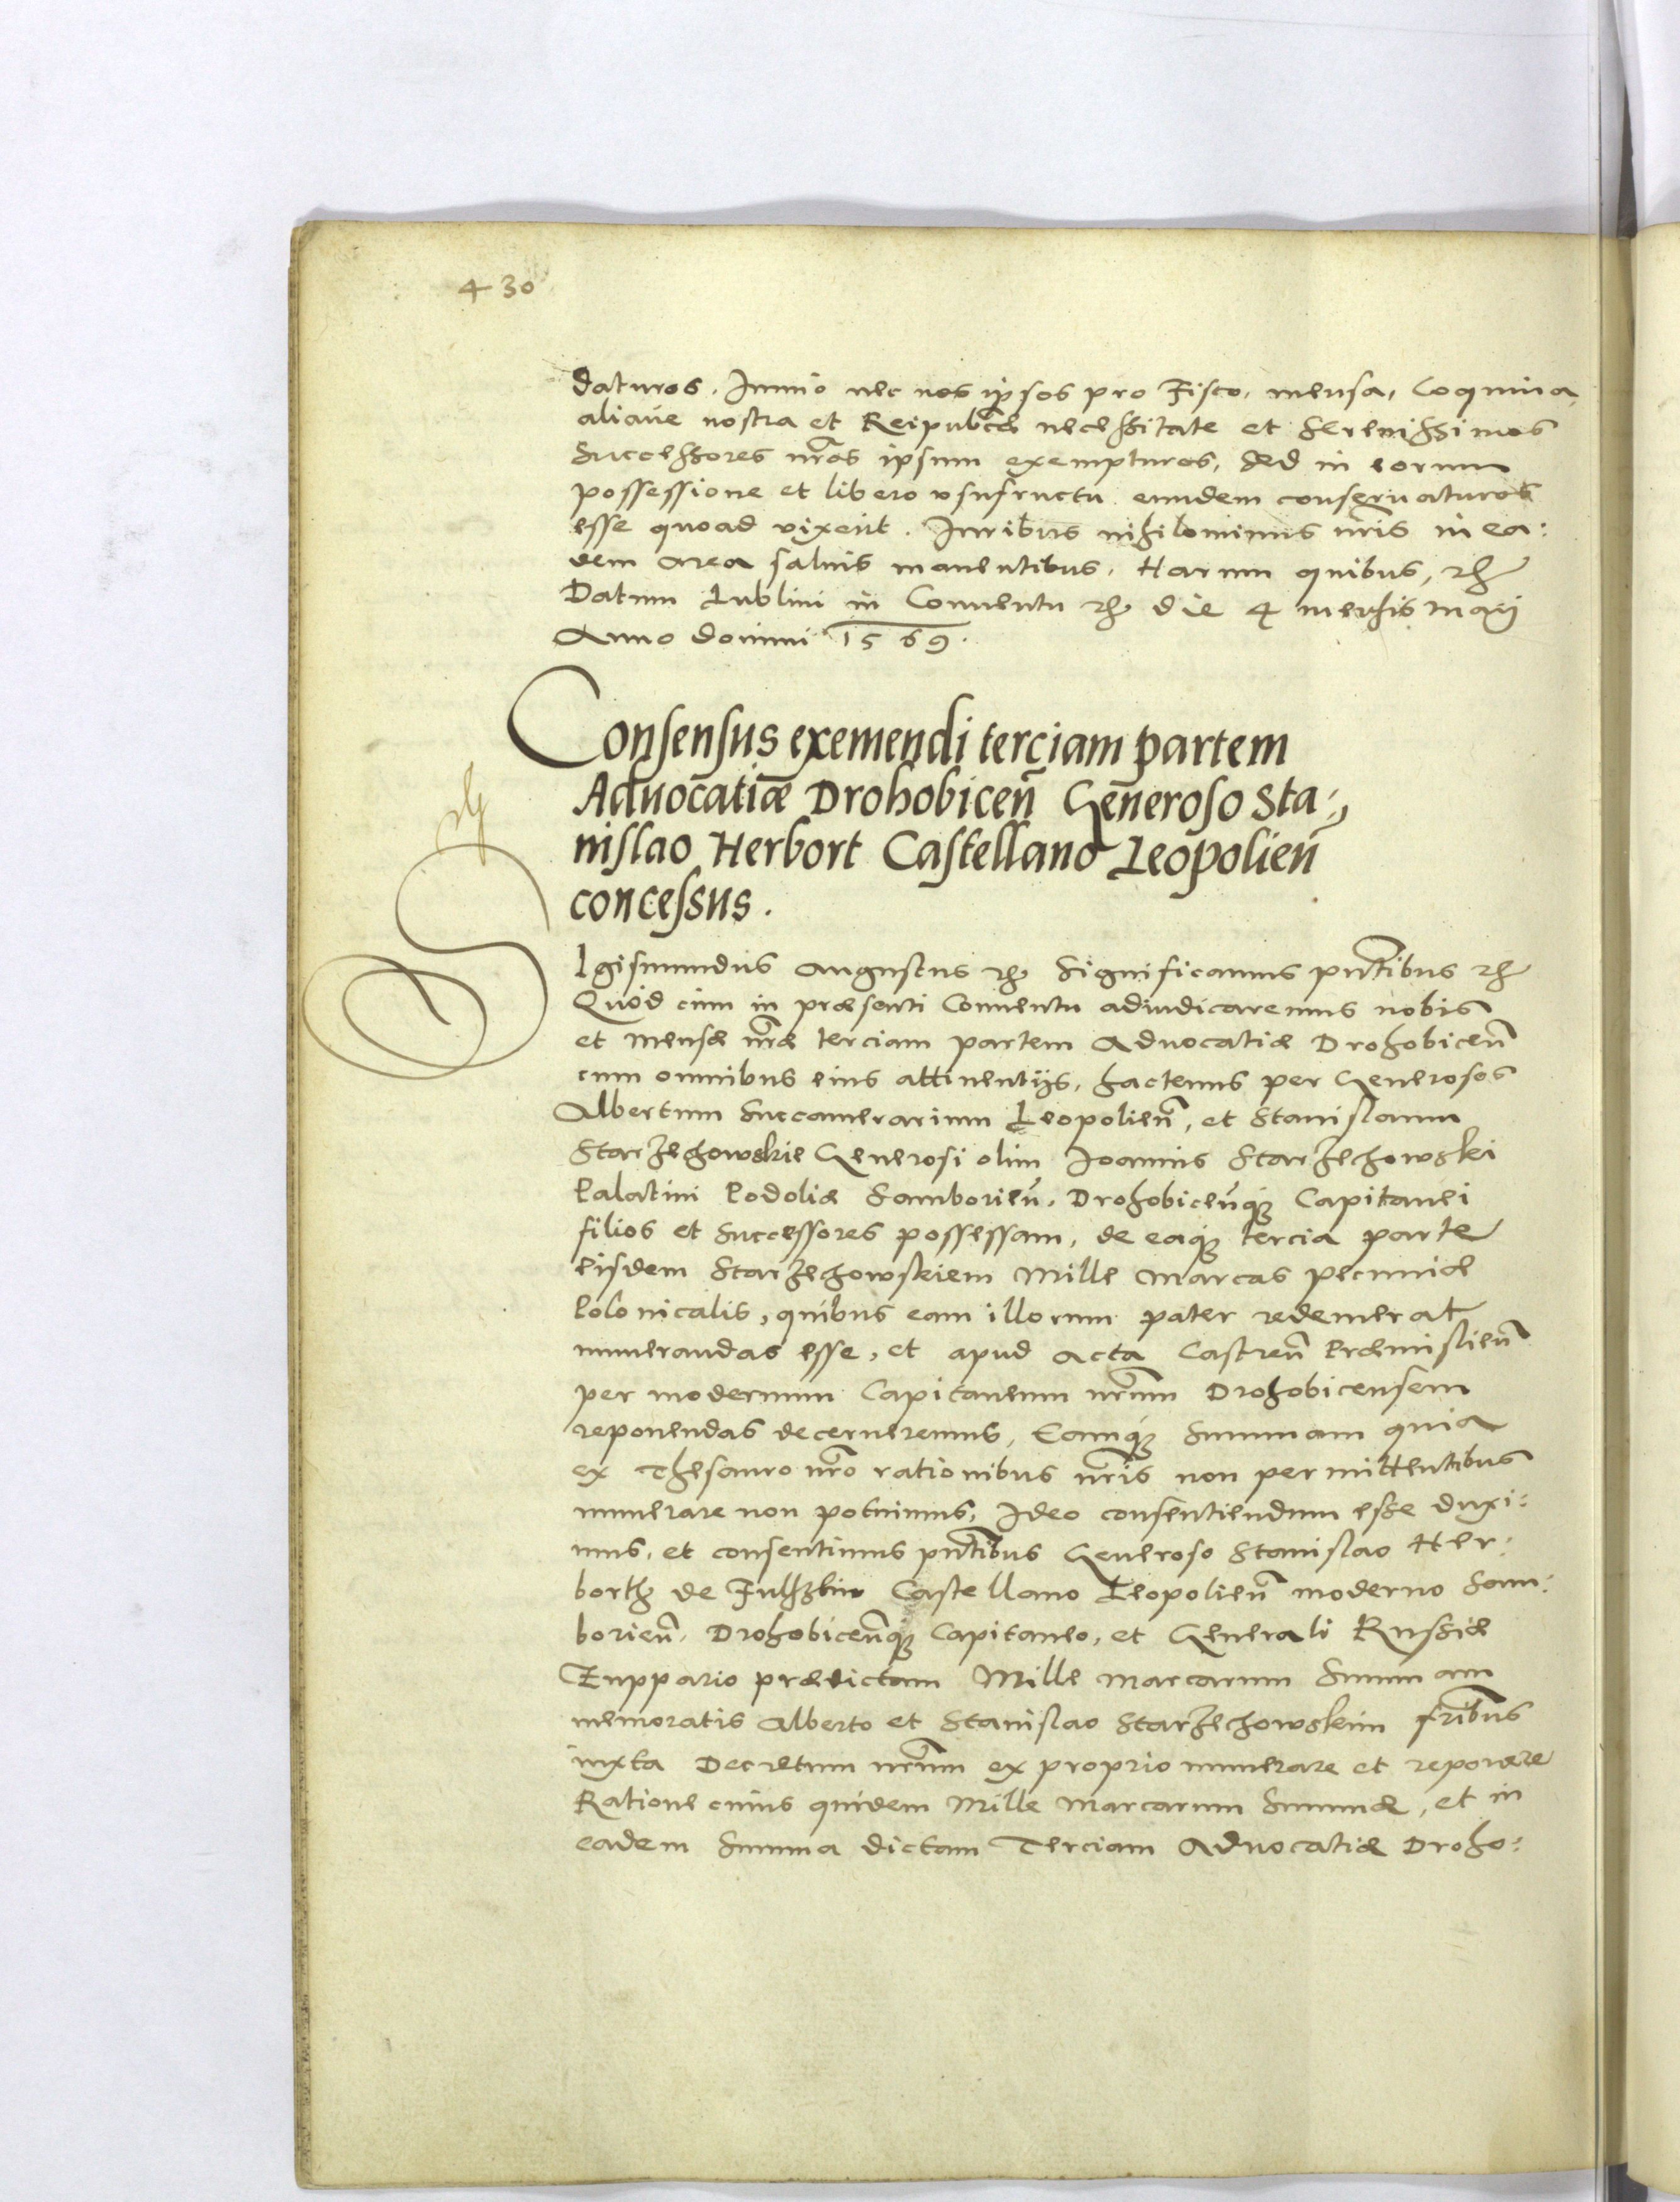 430
daturos. Immo nec nos ipsos pro Fisco, mensa, Coquina,
aliave nostra et Reipublcæ necessitate et Serenissimos
Successores nr̃os ipsum exempturos, sed in eorum
possessione et libero usufructu eundem conservaturos
esse quoad vixerit. Iuribus nihilominus nr̃is in ea:
dem area salvis manentibus. Harum quibus, etc
Datum Lublini in Conventu etc die 4 mensis Maij
Anno domini 1569.
Consensus exemendi terciam partem
Advocatiæ Drohobiceñ Generoso Sta:,
nislao Herbort Castellano Leopolieñ
concessus.
SIgismundus Augustus etc Significamus pñtibus etc
Quod cum in præsenti Conventu adiudicaremus nobis
et Mensæ nr̃æ terciam partem Advocatiæ Drohobiceñ
cum omnibus eius attinentijs, hactenus per Generosos
Albertum Succamerarium Leopolieñ, et Stanislaum
Starzechowskie Generosi olim Ioannis Starzechowski
Palatini Podoliæ Samborieñ. Drohobiceñq̃ Capitanei
filios et Successores possessam, de eaq̃ tercia parte
eisdem Starzechowskiem Mille Marcas pecuniæ
Polonicalis, quibus eam illorum pater redemerat
numerandas esse, et apud Acta Castreñ Præmislieñ
per modernum Capitaneum nr̃um Drohobicensem
reponendas decerneremus, Eamq̃ Summam quia
ex Thesauro nr̃o rationibus nr̃is non permittentibus
numerare non potuimus, Ideo consentiendum esse duxi:
mus, et consentimus pñtibus Generoso Stanislao Her:
borth de Fulsztin Castellano Leopolieñ moderno Sam:
borieñ. Drohobiceñq̃ Capitaneo, et Generali Russiæ
Zuppario prædictam Mille Marcarum Summam
memoratis Alberto et Stanislao Starzechowskim fr̃ibus
iuxta Decretum nr̃um ex proprio numerare et reponere
Ratione cuius quidem Mille Marcarum Summæ, et in
eadem Summa dictam Terciam Advocatiæ Droho: